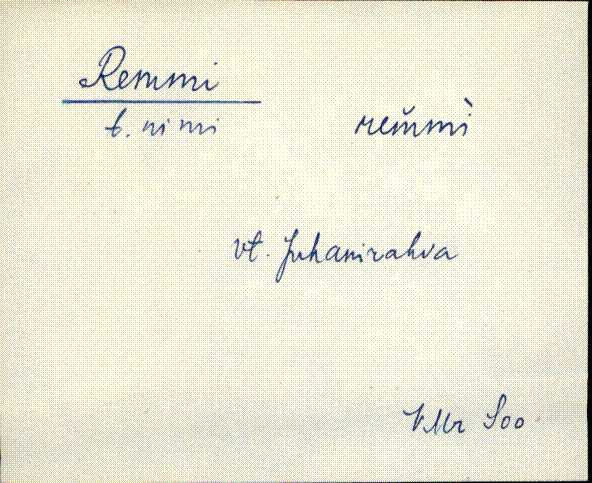 Remmi
t. nimi
rem̆mì
vt. Juhanirahva
VMr Soo